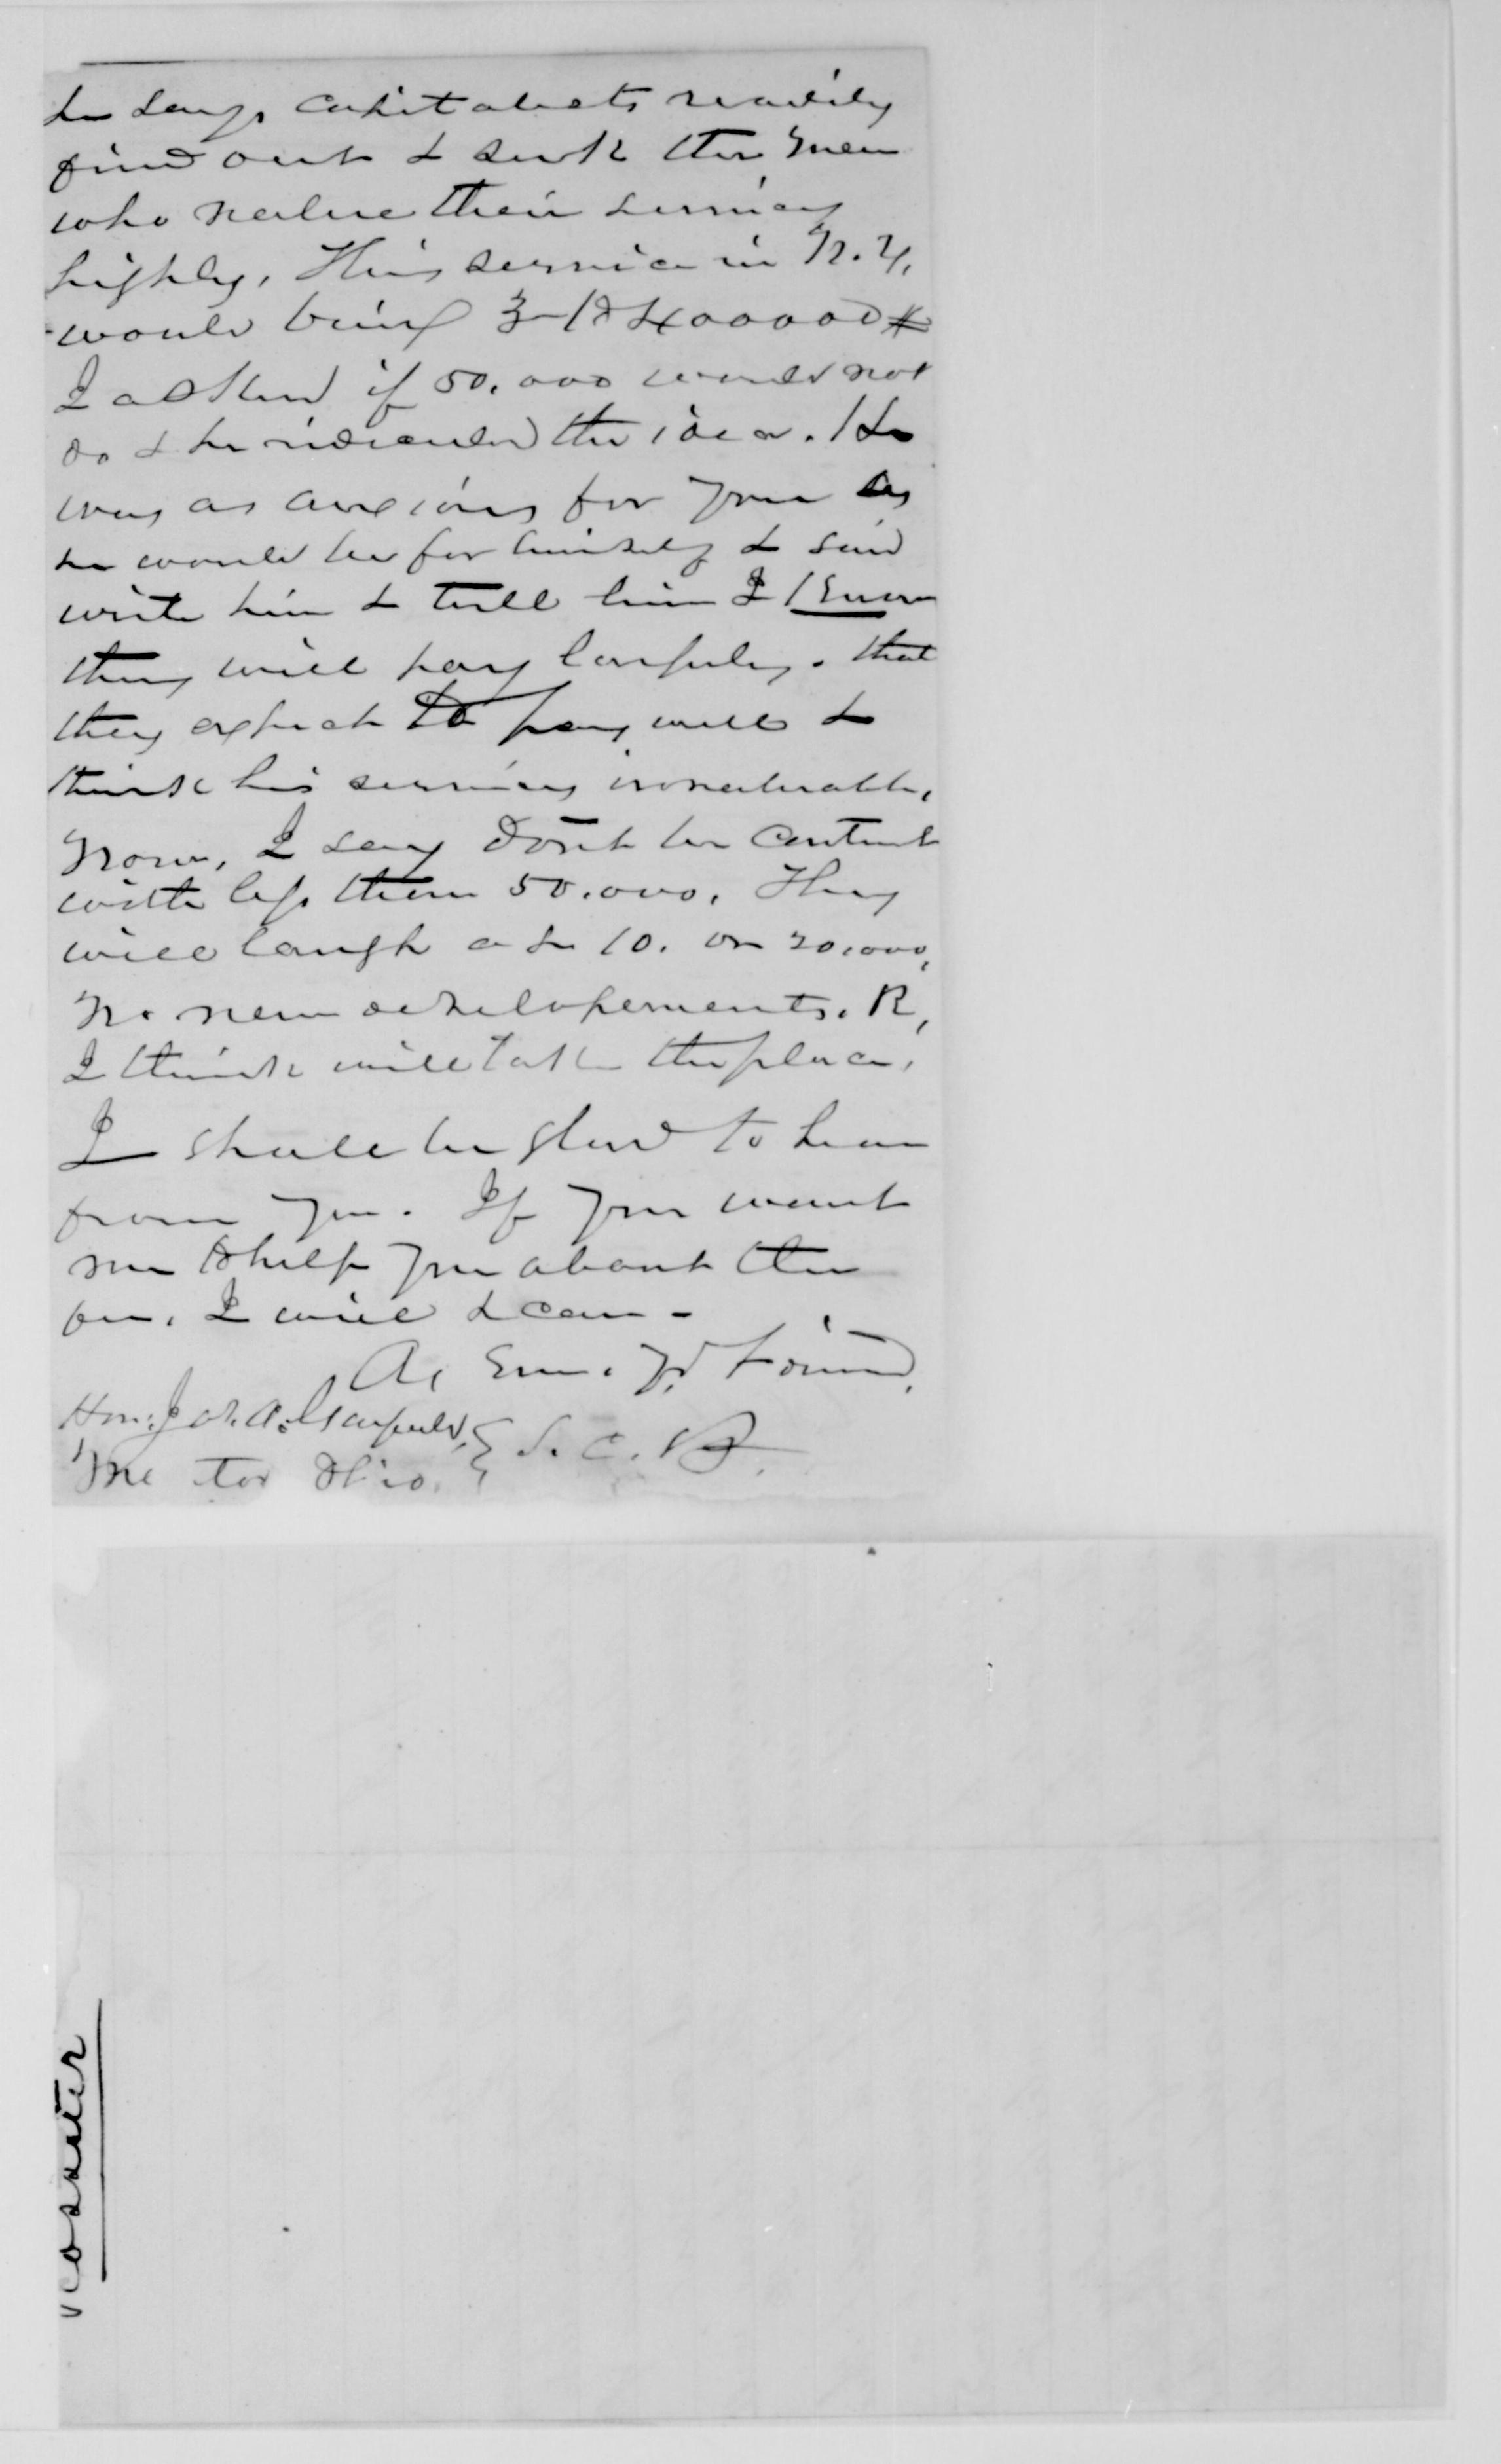 he says, capitalists readily
find out & seek the men
who value their services
highly. This service in N. Y.
would bring 3 to 400000 $
I asked if 50.000 would not
do & he ridiculed the idea. He
was as anxious for you as
he would be for himself & said
write him & tell him I Know
they will pay largely. that
they expect to pay well &
think his services invaluable.
Now, I say don't be content
with less than 50.000. They
will laugh at 10. or 20.000,
No new developements. R,
I think will take the place.
I shall be glad to hear
from you. If you want
me to help you about the
fee, I will & can -
As Ever. Yr friend,
Hon. Jas. A. Garfield, } S. C. B.
Mentor Ohio. }